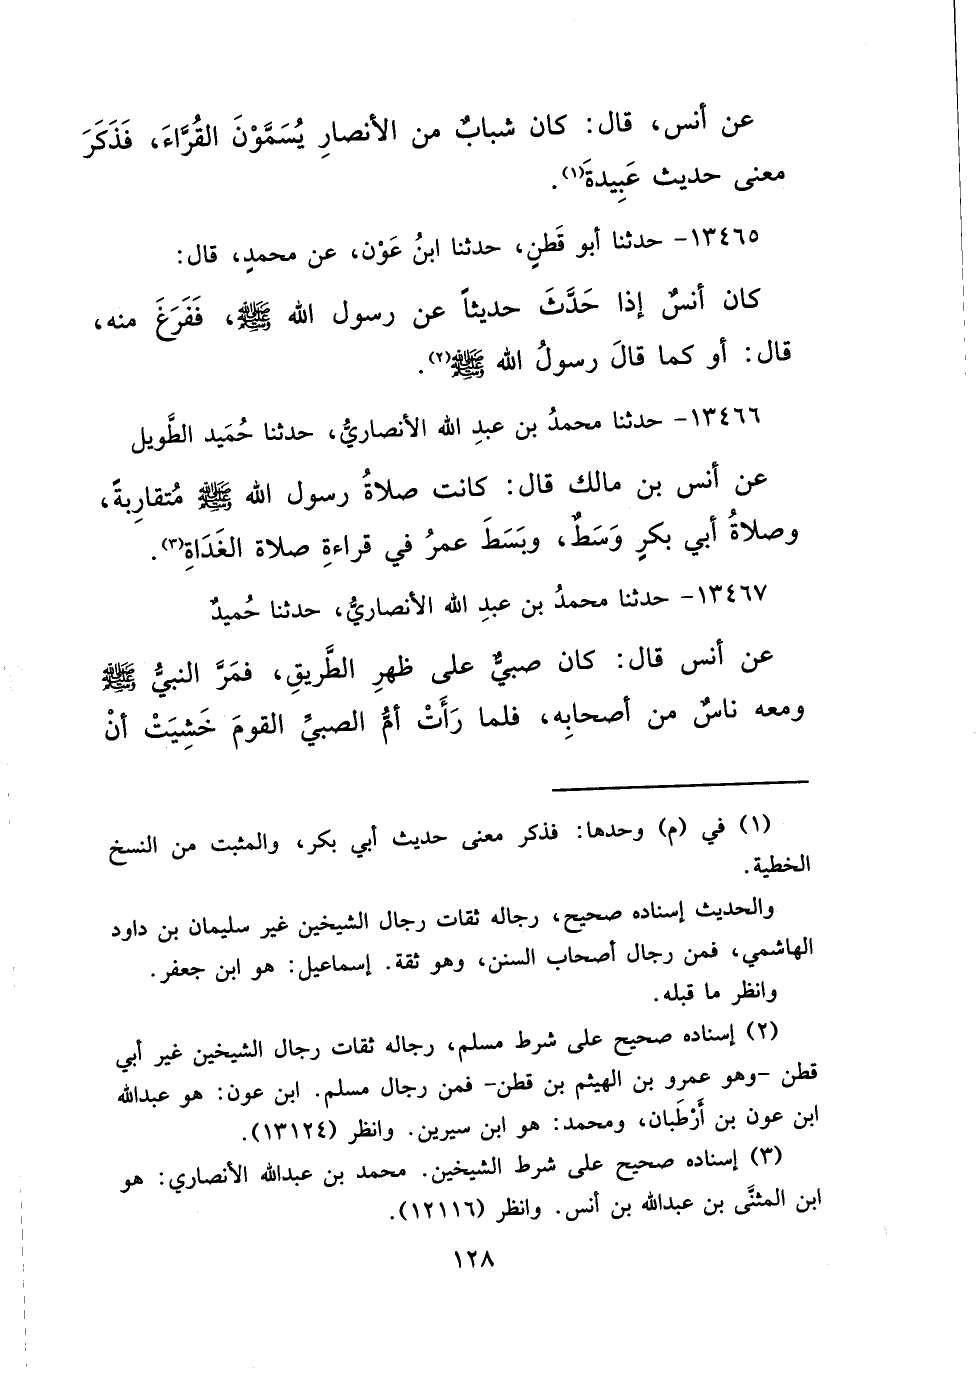 عن أنس، قال: كان شبابٌ من الأنصارِ يُسَمَّوْنَ القُرَّاءَ، فَذَكَرَ
معنى حديث عَبِيدةَ(١).
١٣٤٦٥- حدثنا أبو قَطَنٍ، حدثنا ابنُ عَوْن، عن محمدٍ، قال:
كان أنسٌ إذا حَدَّثَ حديثاً عن رسول الله ﷺ، فَفَرَغَ منه،
قال: أو كما قالَ رسولُ الله ﷺ(٢).
١٣٤٦٦- حدثنا محمدُ بن عبدِ الله الأنصاريُّ، حدثنا حُمَيد الطَّويل
عن أنس بن مالك قال: كانت صلاةُ رسول الله ﷺ مُتقارِبةً،
وصلاةُ أبي بكرٍ وَسَطٌ، وبَسَطَ عمرُ في قراءةِ صلاة الغَدَاةِ(٣).
١٣٤٦٧- حدثنا محمدُ بن عبدِ الله الأنصاريُّ، حدثنا حُميدٌ
عن أنس قال: كان صبيٌّ على ظهرِ الطَّريقِ، فمَرَّ النبيُّ ﷺ
ومعه ناسٌ من أصحابِه، فلما رَأَتْ أمُّ الصبيِّ القومَ خَشِيَتْ أنْ
(١) في (م) وحدها: فذكر معنى حديث أبي بكر، والمثبت من النسخ
الخطية.
والحديث إسناده صحيح، رجاله ثقات رجال الشيخين غير سليمان بن داود
الهاشمي، فمن رجال أصحاب السنن، وهو ثقة. إسماعيل: هو ابن جعفر.
وانظر ما قبله.
(٢) إسناده صحيح على شرط مسلم، رجاله ثقات رجال الشيخين غير أبي
قطن -وهو عمرو بن الهيثم بن قطن- فمن رجال مسلم. ابن عون: هو عبدالله
ابن عون بن أَرْطَبان، ومحمد: هو ابن سيرين. وانظر (١٣١٢٤).
(٣) إسناده صحيح على شرط الشيخين. محمد بن عبدالله الأنصاري: هو
ابن المثنَّى بن عبدالله بن أنس. وانظر (١٢١١٦).
١٢٨